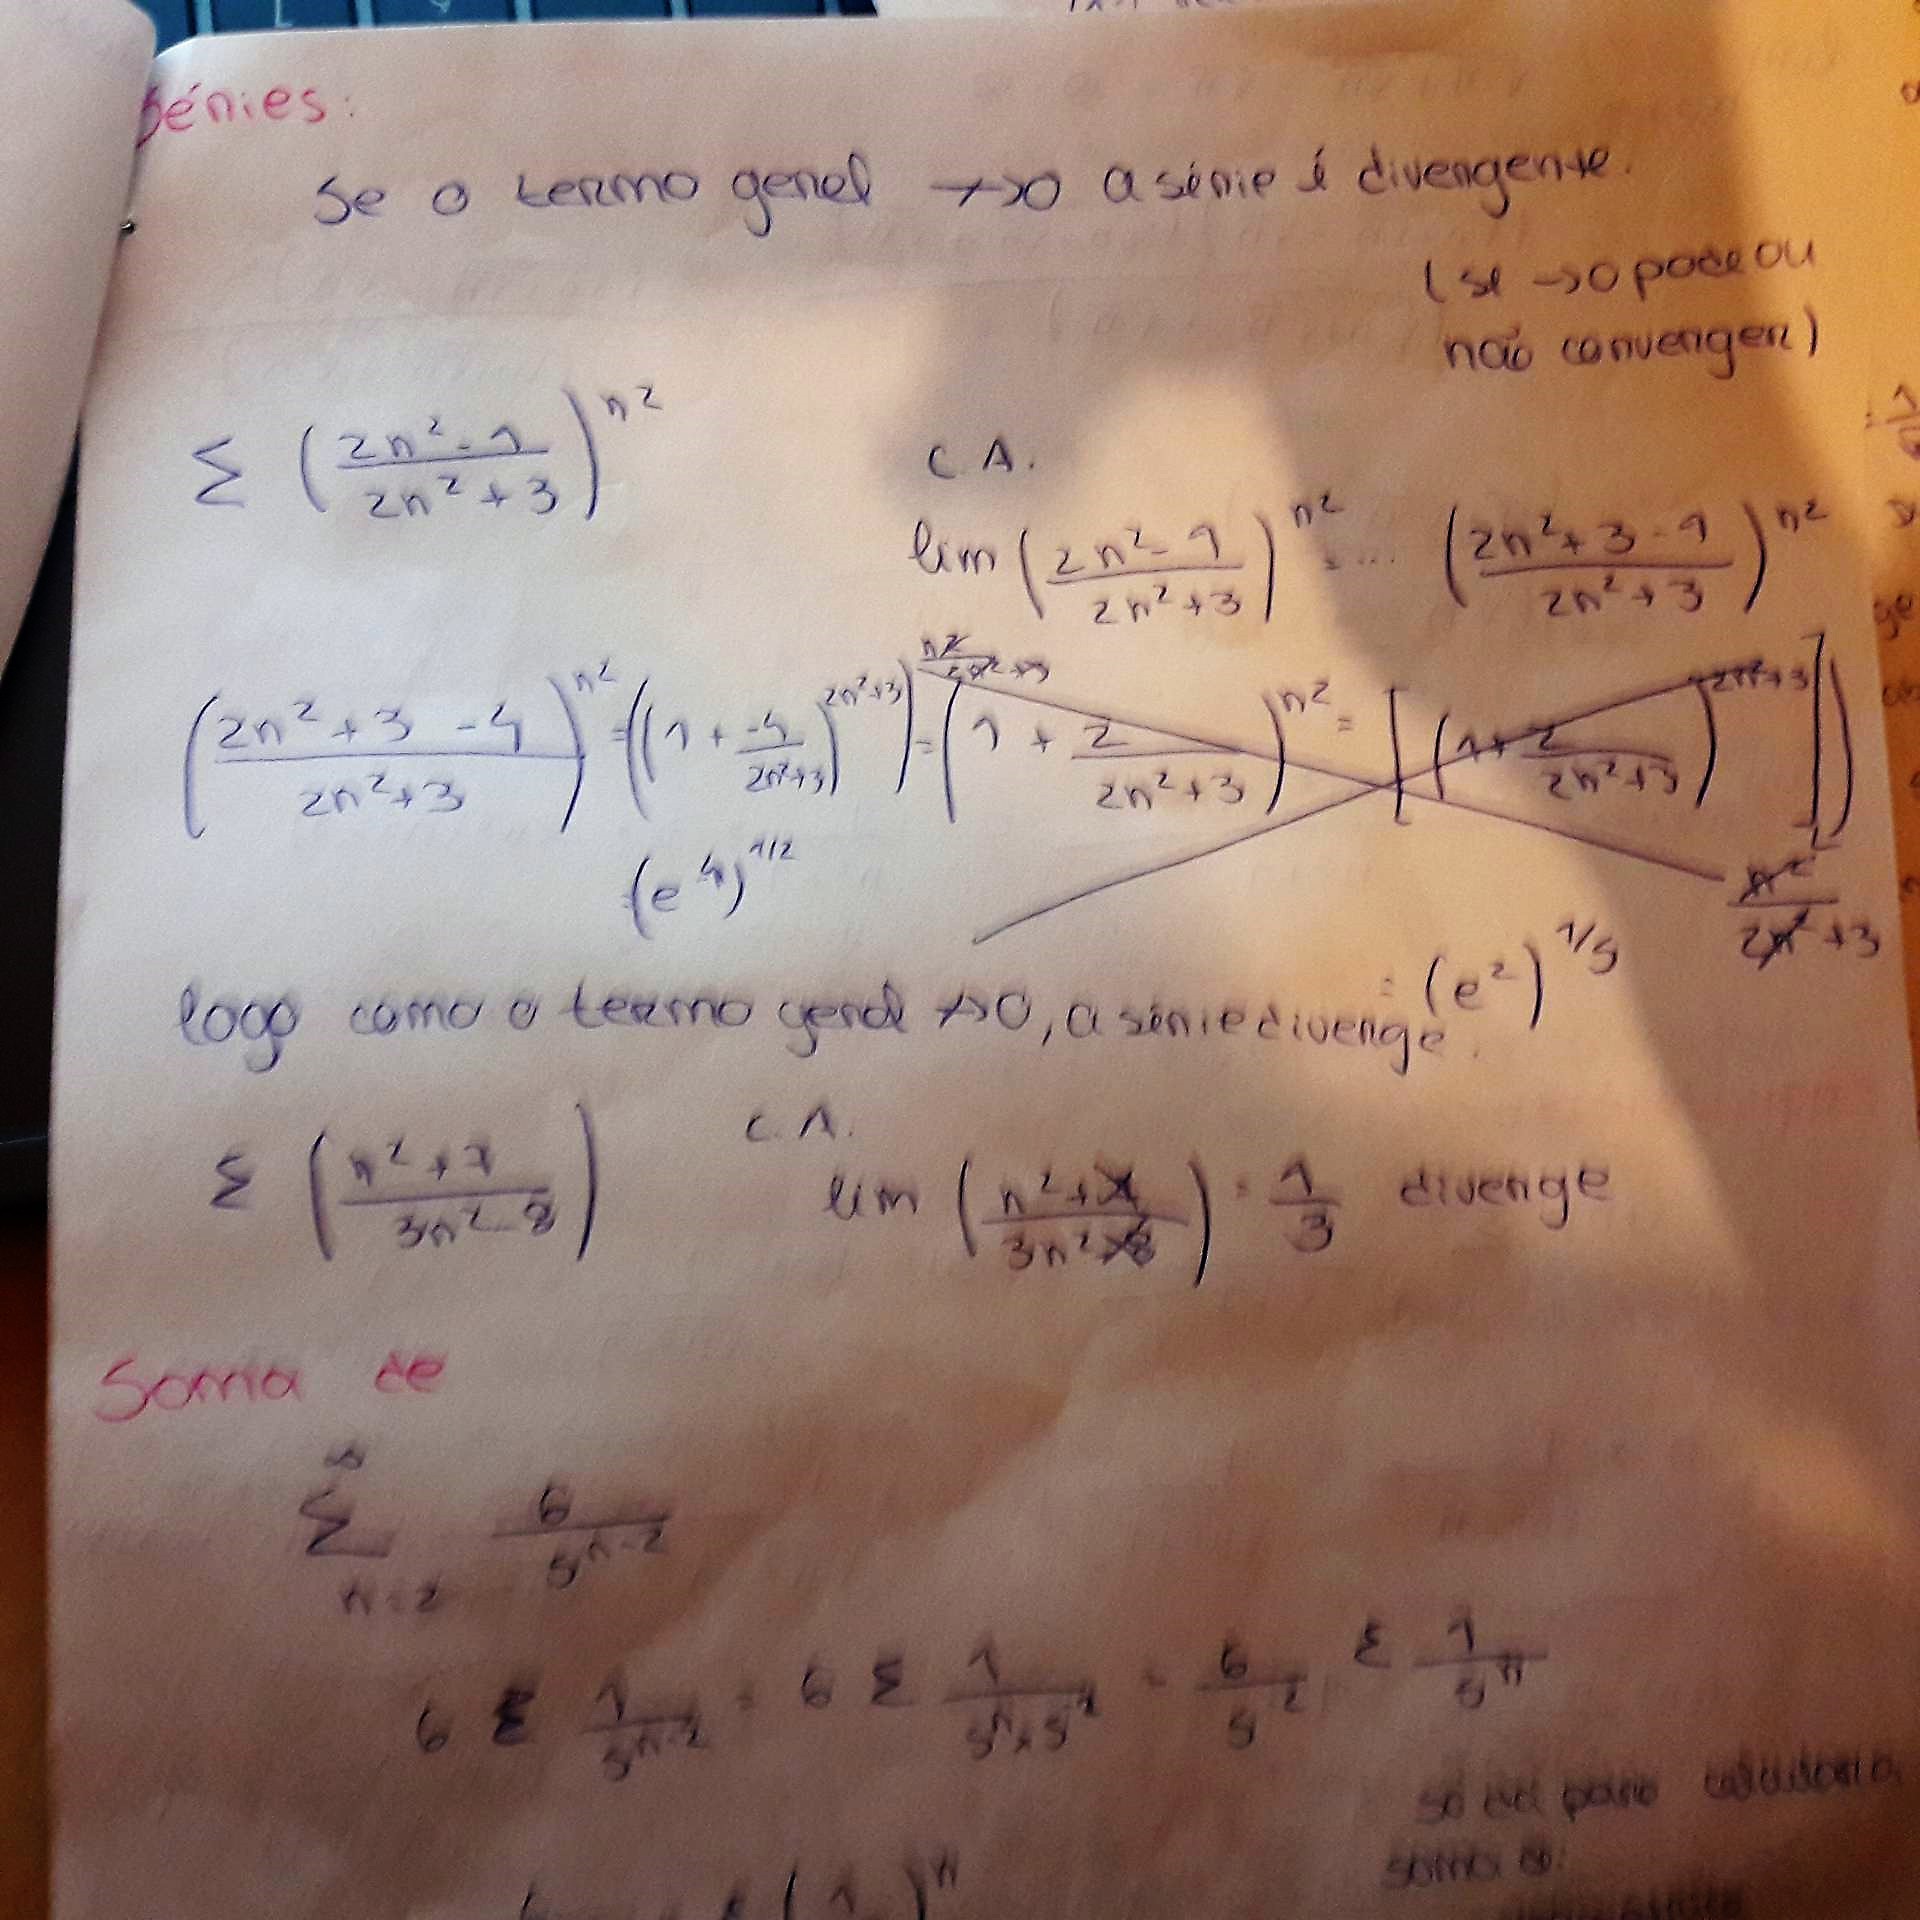 Séries:
Se o termo geral ↛0 a série é divergente.
(se →0 pode ou
não convergir)
Σ ((2n²-1)/(2n²+3))^n²
C.A.
lim ((2n²-1)/(2n²+3))^n² = ... ((2n²+3-1)/(2n²+3))^n²
((2n²+3-4)/(2n²+3))^n² = ((1 + -4/(2n²+3))^(2n²+3))^(n²/(2n²+3)) = (1 + 2/(2n²+3))^n² = [((1+2/(2n²+3))^(2n²+3)])^(n²/(2n²+3))
(e^4)^1/2
= (e²)^1/5
logo como o termo geral ↛0, a série diverge.
Σ ((n²+7)/(3n²-8))
C.A.
lim ((n²+7)/(3n²-8)) = 1/3 diverge
Soma de
∞ Σ n=2 6/5^(n-2)
6 Σ 1/5^(n-2) = 6 Σ 1/(5^n×5^-2) = 6/5^-2 Σ 1/5^n
só dá para
soma